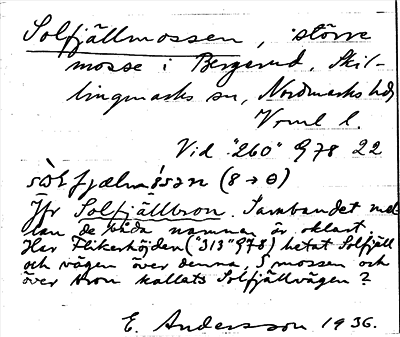 Solfjällmossen, större
mosse i Bergerud, Skil-
lingmarks sn, Nordmarks hd,
Vrml l.
Vid "260" 9 78 22
Jfr Solfjällbron. Sambandet mel-
lan de båda namnen är oklart.
Har Flikerhöjden ("313" 9 78) hetat Solfjäll
och vägen över denna, mossen och
över bron kallats Solfjällvägen?
E. Andersson 1936.